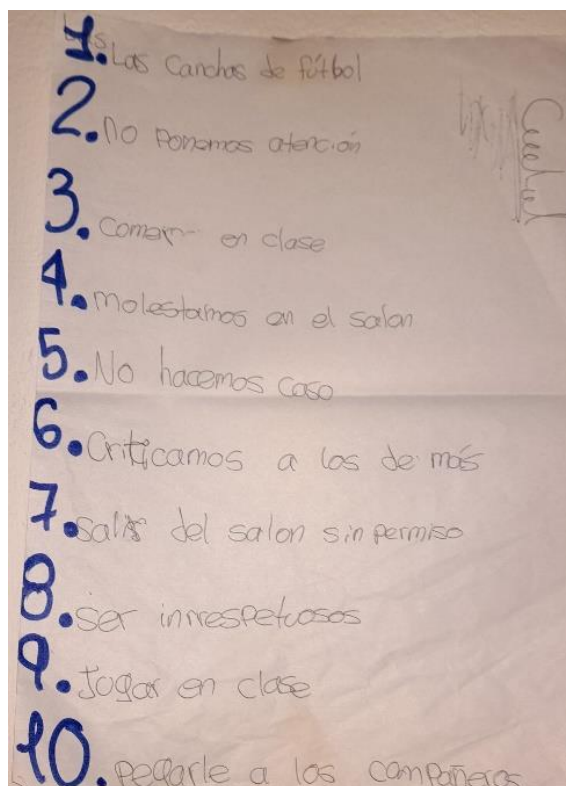 1. Las Canchas de fútbol
2. no Ponemos atención
3. comer en clase
4. molestamos en el salon
5. No hacemos caso
6. Criticamos a los de más
7. salir del salon sin permiso
8. ser inrrespetuosos
9. Jugar en clase
10. pegarle a los compañeros